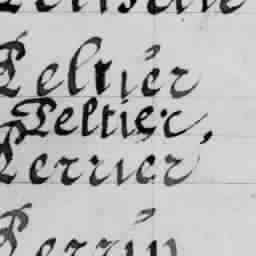 Peltier
Peltier,
Perrier
Perrin